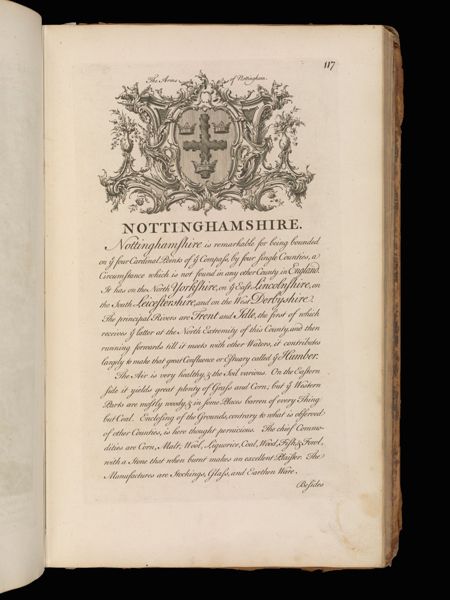 117
The Arms of Nottingham.
NOTTINGHAMSHIRE.
Nottinghamſhire is remarkable for being bounded
on ẏ four Cardinal Points of ẏ Compaſs, by four ſingle Counties, a
Circumſtance which is not found in any other County in England.
It has on the North Yorkſhire, on ẏ Eaſt Lincolnſhire, on
the South Leiceſterſhire, and on the Weſt Derbyſhire.
The principal Rivers are Trent and Idle, the firſt of which
receives ẏ latter at the North Extremity of this County, and then
running forwards till it meets with other Waters, it contributes
largely to make that great Confluence or Eſtuary called ẏ Humber.
The Air is very healthy, & the Soil various. On the Eaſtern
ſide it yields great plenty of Graſs and Corn; but ẏ Weſtern
Parts are moſtly woody, & in ſome Places barren of every Thing
but Coal. Encloſing of the Grounds, contrary to what is obſerved
of other Counties, is here thought pernicious. The chief Commo-
dities are Corn, Malt, Wool, Liquorice, Coal, Wood, Fiſh, & Fowl,
with a Stone that when burnt makes an excellent Plaiſter. The
Manufactures are Stockings, Glaſs, and Earthen Ware.
Beſides